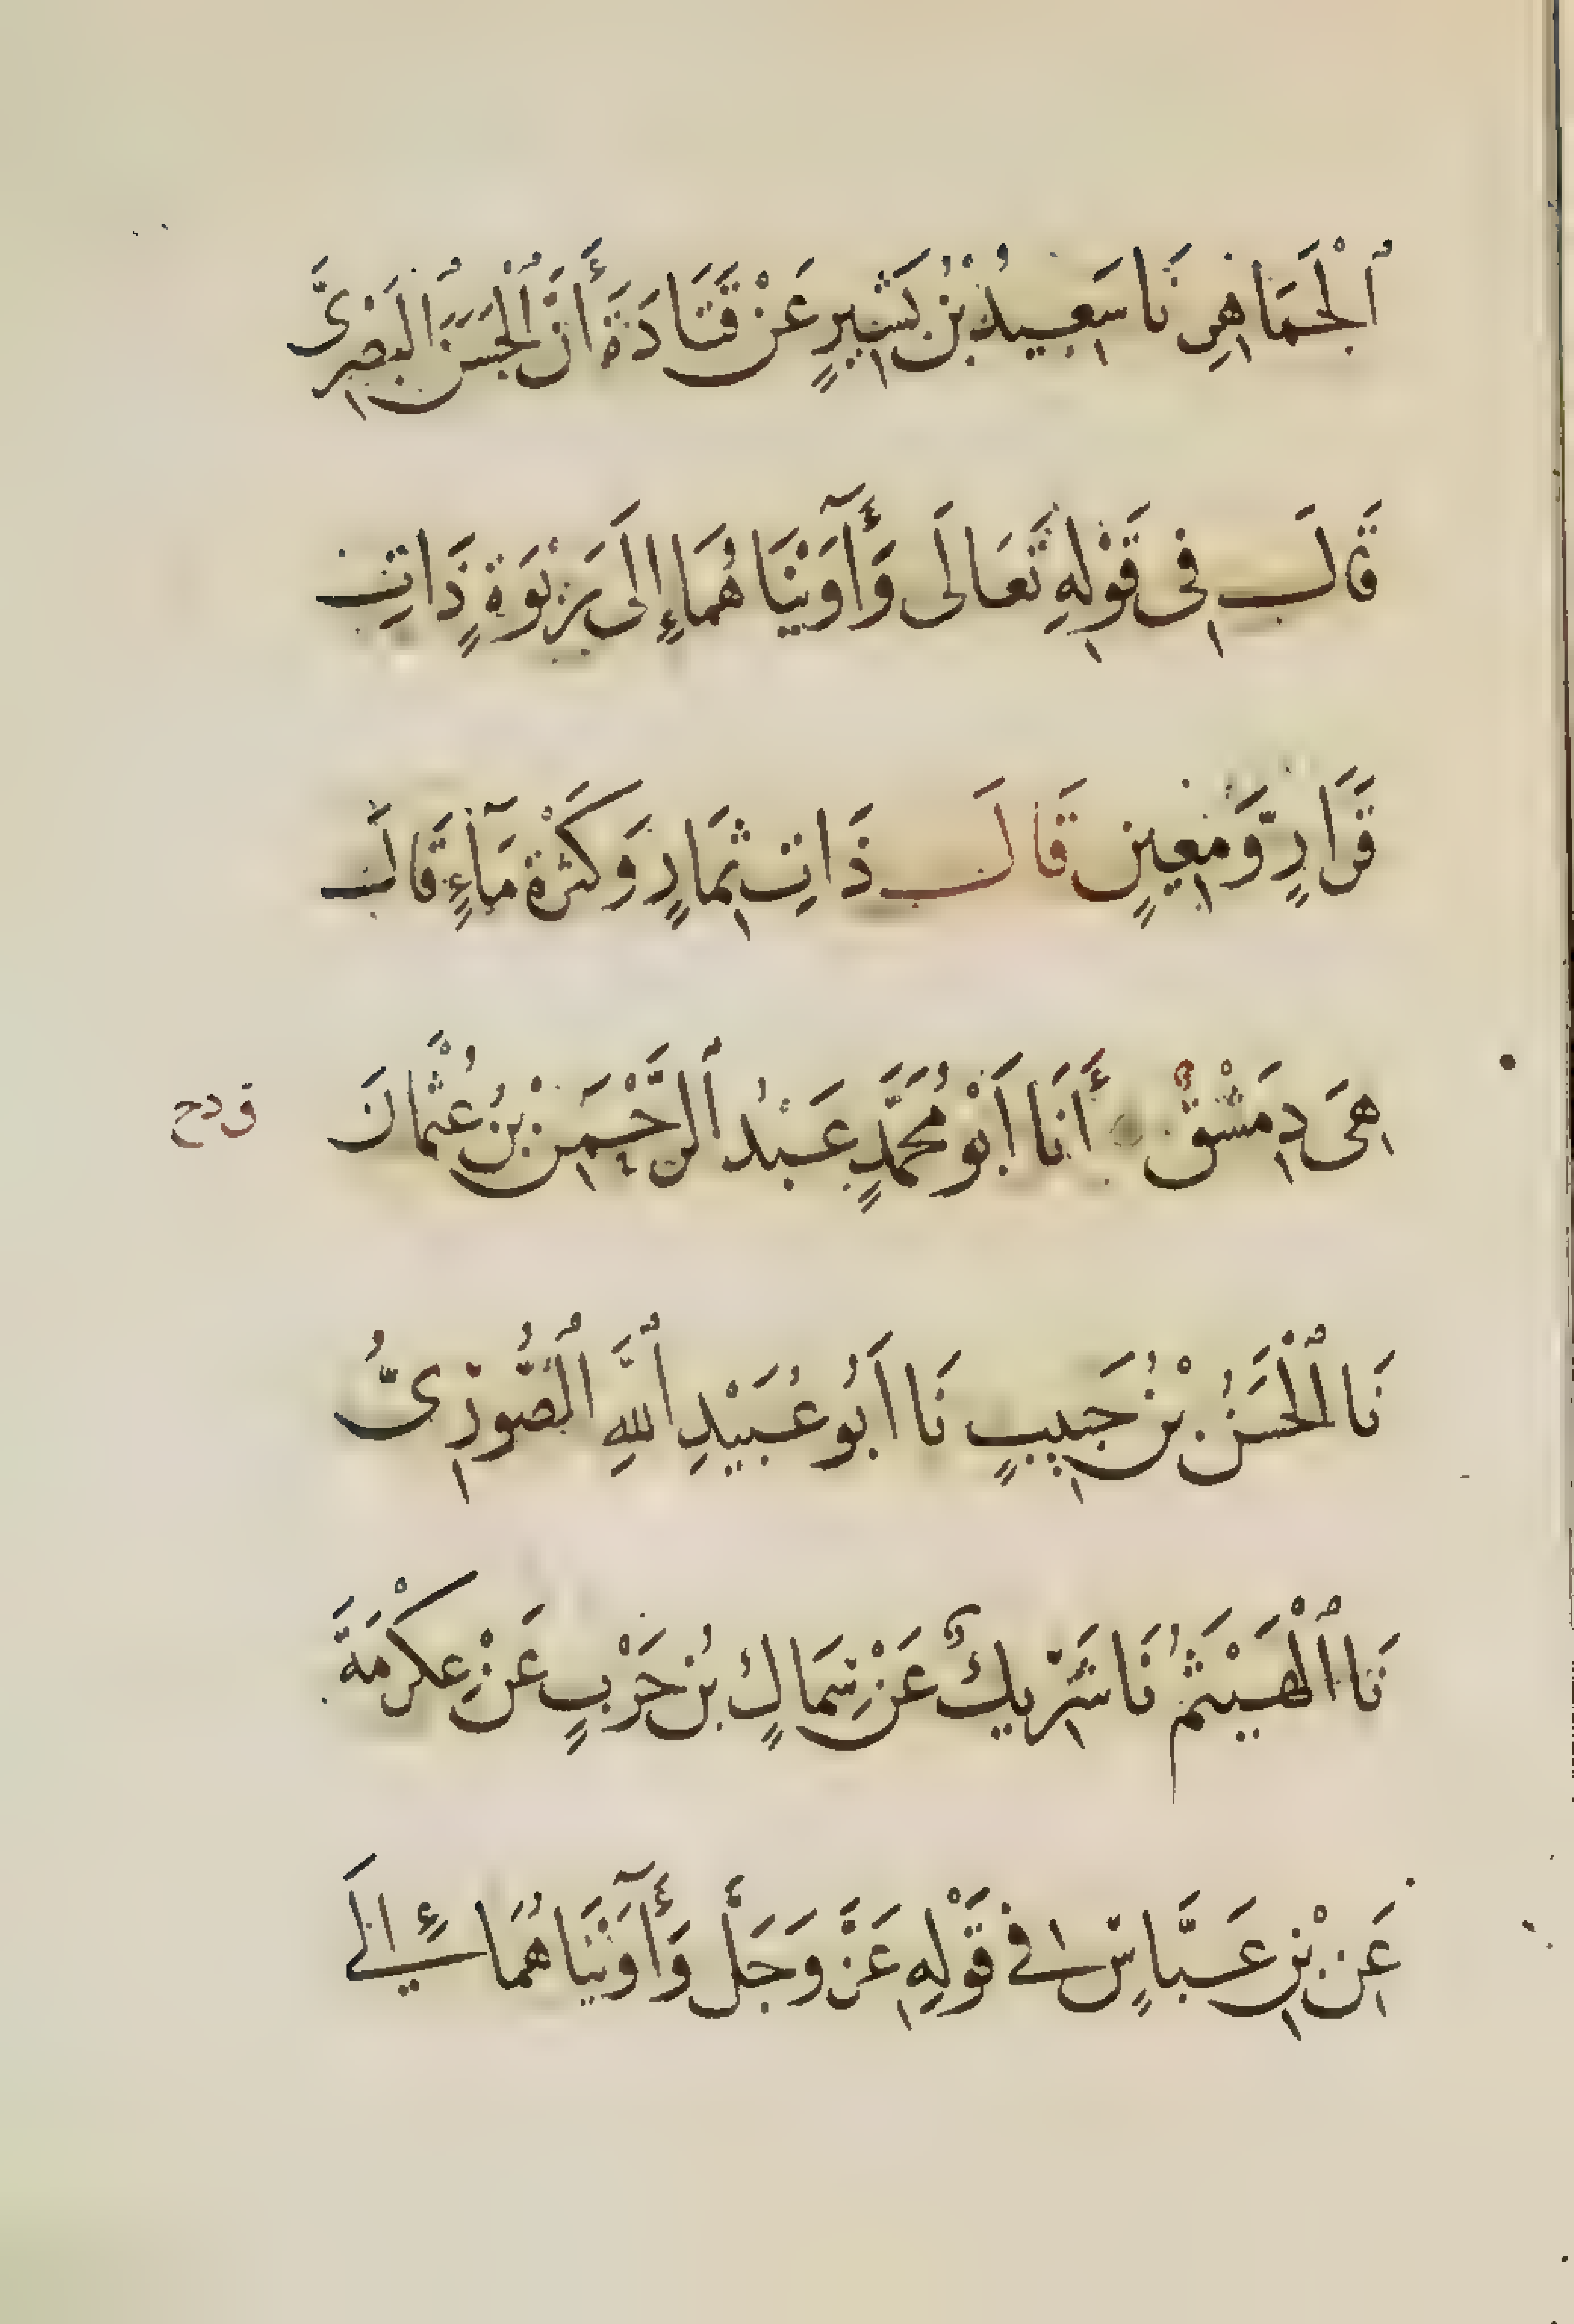 ٱلْجَمَاهِرِ نَا سَعِيدُ بْنُ بَشِيرٍ عَنْ قَتَادَةَ أَنَّ ٱلْحَسَنَ ٱلْبَصْرِىَّ
قَالَ فِى قَوْلِهِ تَعَالَى وَأٓوَيْنَاهُمَاءِإِلَى رَبْوَةٍ ذَاتِ
قَرَارٍ وَّمَعِينٍ قَالَ ذَاتِ ثِمَارٍ وَكَثْرَةِ مَآءٍ قَالَ
هِىَ دِمَشْقُ أَنَا أَبُو مُحَمَّدٍ عَبْدُ ٱلرَّحْمَنِ بْنُ عُثْمَانَ
ق دح
نَا ٱلْحَسَنُ بْنُ حَبِيبٍ نَا أَبُو عُبَيْدِ ٱللَّهِ ٱلصُّورِىُّ
نَا ٱلْهَيْثَمُ نَا شَرِيكٌ عَنْ سِمَاكِ بْنِ حَرْبٍ عَنْ عِكْرِمَةَ
عَنِ بْنِ عَبَّاسٍ فِى قَوْلِهِ عَزَّ وَجَلَّ وَأٓوَيْنَاهُمَا إِلَى